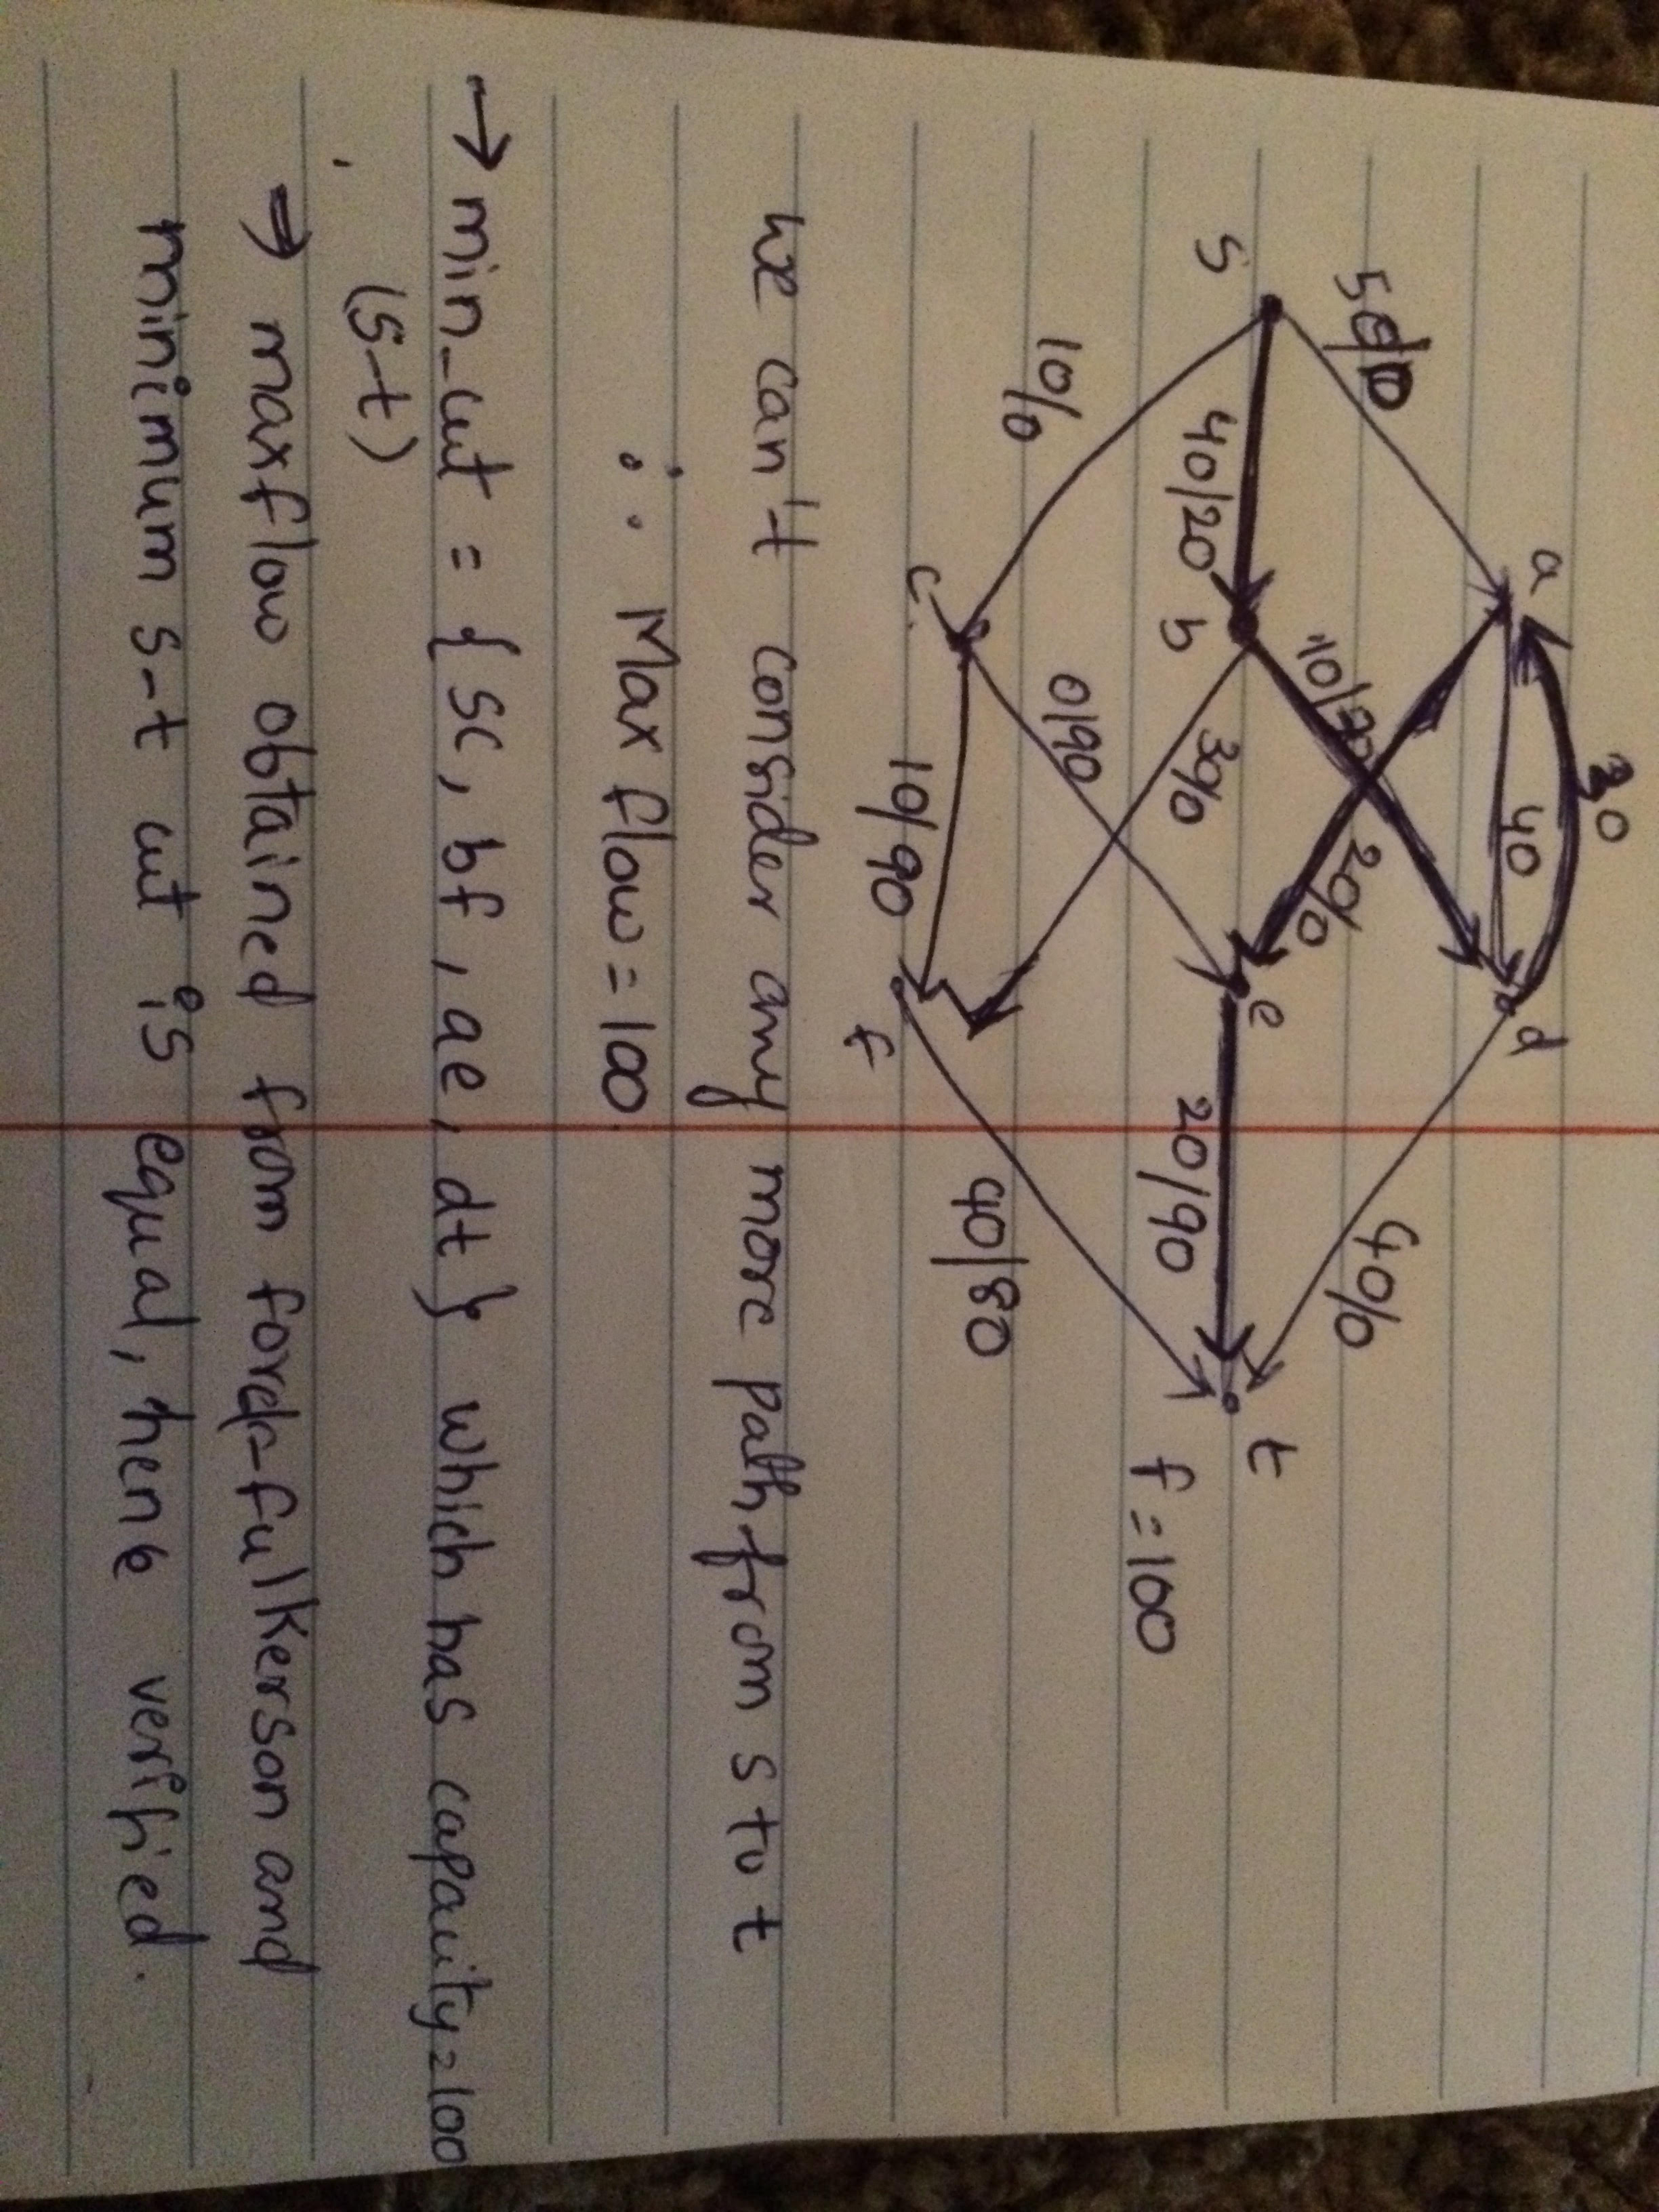 a
30
d
50/
40
40/0
s
40/20
b
10/
20/0
e
20/90
t
f = 100
10/0
0/90
30/0
c
10/90
f
40/80
we can't consider any more path from s to t
∴ Max flow = 100.
→ min_cut = { sc, bf, ae, dt } which has capacity = 100
(s-t)
⇒ maxflow obtained from ford-fulkerson and
minimum s-t cut is equal, hence verified.